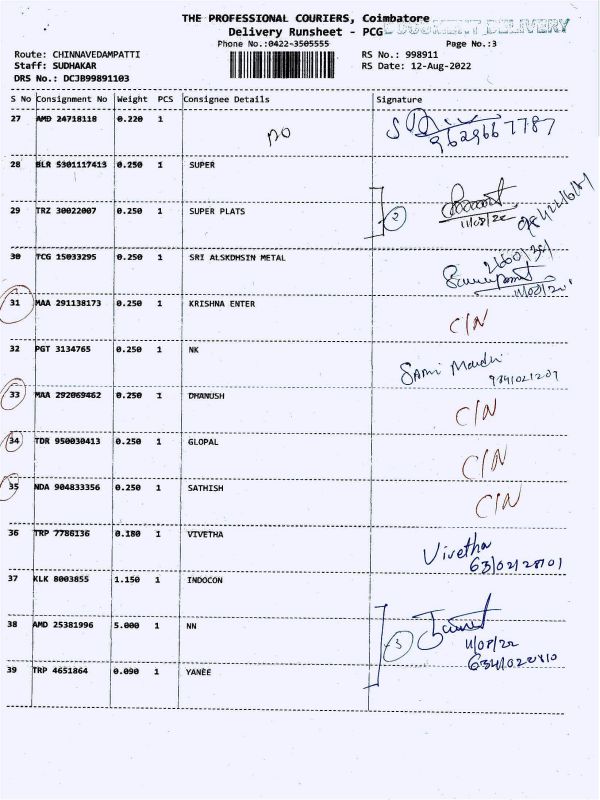 THE PROFESSIONAL COURIERS, Coimbatore
DOCUMENT DELIVERY
Delivery Runsheet - PCG
Phone No.:0422-3505555 Page No.:3
Route: CHINNAVEDAMPATTI RS No.: 998911
Staff: SUDHAKAR RS Date: 12-Aug-2022
DRS No.: DCJB99891103
S No Consignment No Weight PCS Consignee Details Signature
27 AMD 24718118 0.220 1 9629667787
28 BLR 5301117413 0.250 1 SUPER
29 TRZ 30022007 0.250 1 SUPER PLATS 2 11/08/22
30 TCG 15033295 0.250 1 SRI ALSKDHSIN METAL
31 MAA 291138173 0.250 1 KRISHNA ENTER C/N
32 PGT 3134765 0.250 1 NK
33 MAA 292069462 0.250 1 DHANUSH C/N
34 TDR 950030413 0.250 1 GLOPAL C/N
35 NDA 904833356 0.250 1 SATHISH C/N
36 TRP 7786136 0.180 1 VIVETHA Vivetha
37 KLK 8003855 1.150 1 INDOCON
38 AMD 25381996 5.000 1 NN 3 11/08/22
39 TRP 4651864 0.090 1 YANEE